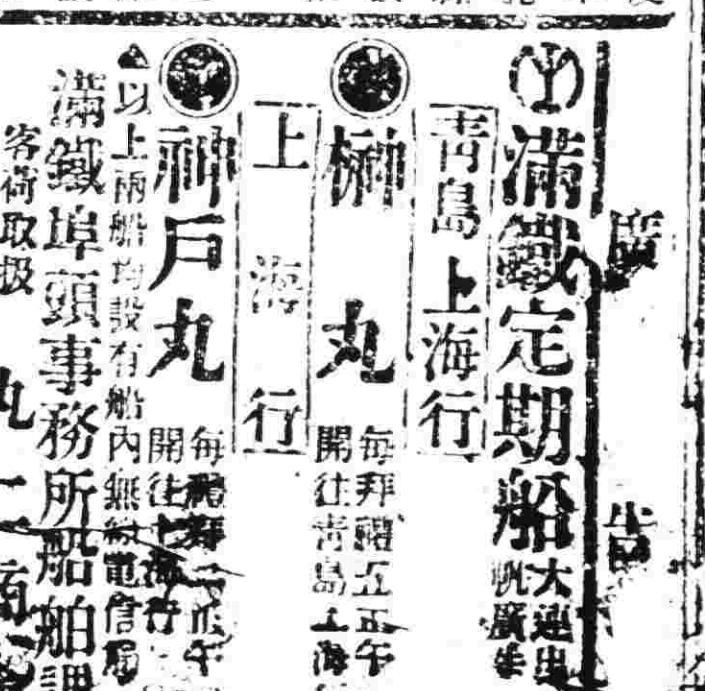 廣告
滿鐵定期船
大連出
帆廣告
青島上海行
榊丸
每拜禮五正午
開往青島上海
上海行
神戶丸
每禮拜二正午
開往上海行
▲以上兩船均設有船內無線電信局
滿鐵埠頭事務所船舶課
客荷取扱
丸二